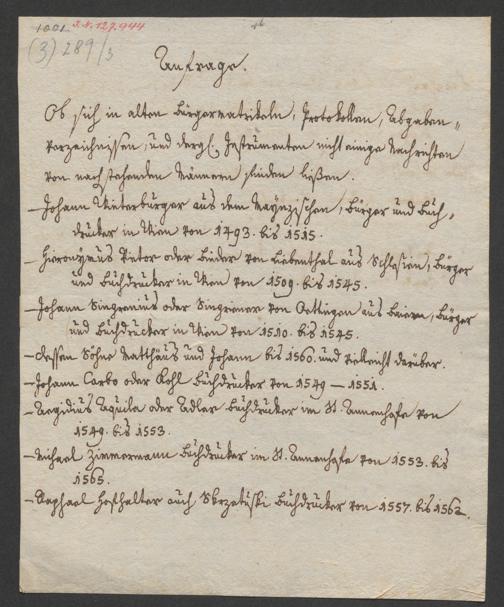 1001. I.N. 127.944
(3) 289/3
Anfrage.
Ob sich in alten Bürgermatrikeln, Protokollen, Abgaben-
verzeichnissen, und dergl. Instrumenten nicht einige Nachrichten
von nachstehenden Männern finden ließen.
– Johann Winterburger aus dem Maynzischen, Bürger und Buch-
drucker in Wien von 1493. bis 1515.
– Hieronymus Vietor oder Binder von Liebenthal aus Schlesien, Bürger
und Buchdrucker in Wien von 1509. bis 1545.
– Johann Singrenius oder Singriener von Oettingen aus Baiern, Bürger
und Buchdrucker in Wien von 1510. bis 1545.
– dessen Söhne Matthäus und Johann bis 1560. und vielleicht darüber.
– Johann Carbo oder Kohl Buchdrucker von 1549 – 1551.
– Aegidius Aquila oder Adler Buchdrucker im St. Annenhofe von
1549. bis 1553.
– Michael Zimmermann Buchdrucker im St. Annenhofe von 1553. bis
1565.
– Raphael Hofhalter auch Skrzetuski Buchdrucker von 1557. bis 1562.